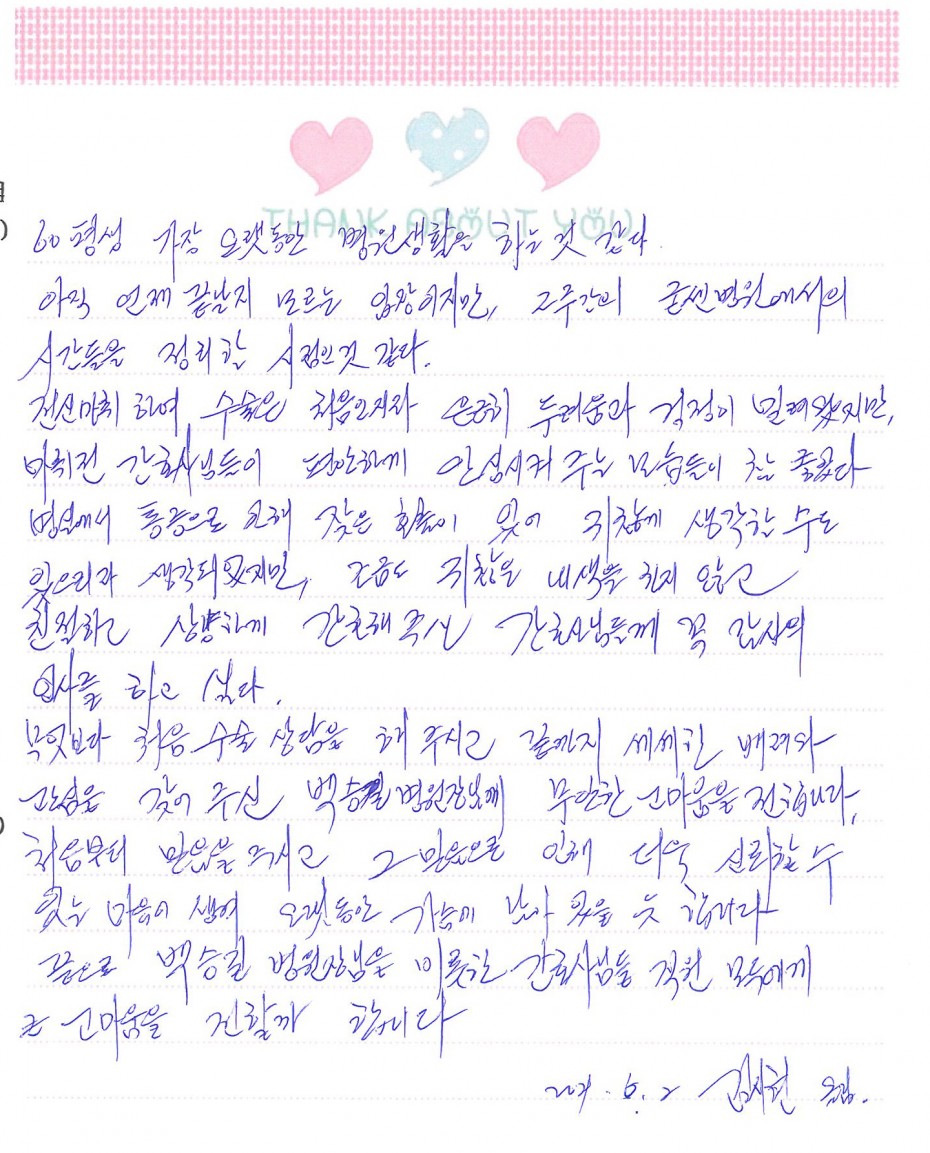 THANK ABOUT YOU
60평생 가장 오랫동안 병원생활을 하는것 같다.
아직 언제 끝날지 모르는 입장이지만, 2주간의 굳센병원에서의
시간들을 정리할 시점인것 같다.
전신마취 하여 수술은 처음인지라 은근히 두려움과 걱정이 밀려왔지만,
마취전 간호사님들이 편안하게 안심시켜 주는 모습들이 참 좋았다
병실에서 통증으로 인해 잦은 호출이 있어 귀찮게 생각할 수도
있으리라 생각되었지만, 조금도 귀찮은 내색을 하지 않고
친절하고 상냥하게 간호해 주신 간호사님들께 꼭 감사의
인사를 하고 싶다.
무엇보다 처음 수술 상담을 해 주시고 끝까지 세세한 배려와
관심을 갖어 주신 백승길 병원장님께 무한한 고마움을 전합니다,
처음부터 믿음을 주시고 그 믿음으로 인해 더욱 신뢰할 수
있는 마음이 생겨 오랫동안 가슴에 남아 있을 듯 합니다
끝으로 백승길 병원장님을 비롯한 간호사님들 직원 모두에게
큰 고마움을 전할까 합니다
6. 2 올림.